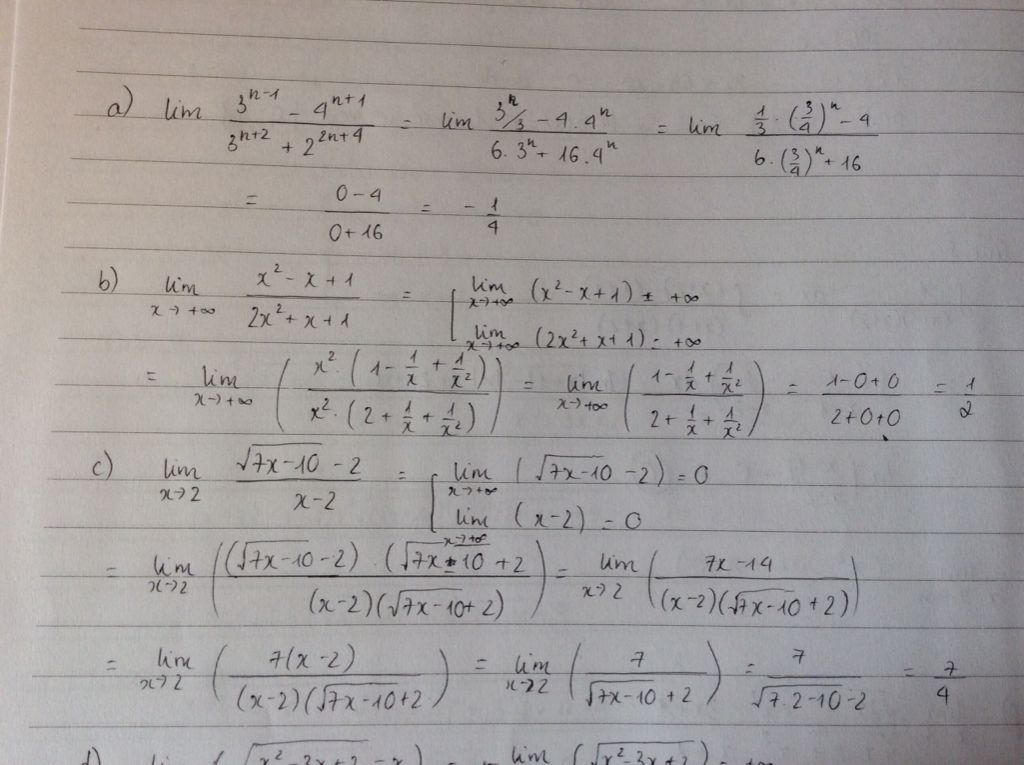 a) lim (3^(n-1) - 4^(n+1))/(3^(n+2) + 2^(2n+4)) = lim (3^n/3 - 4.4^n)/(6.3^n + 16.4^n) = lim (1/3 . (3/4)^n - 4)/(6.(3/4)^n + 16)
= (0-4)/(0+16) = -1/4
b) lim x→+∞ (x² - x + 1)/(2x² + x + 1) = [ lim x→+∞ (x² - x + 1) = +∞
lim x→+∞ (2x² + x + 1) = +∞
= lim x→+∞ ( x².(1 - 1/x + 1/x²) / x².(2 + 1/x + 1/x²) ) = lim x→+∞ ( (1 - 1/x + 1/x²)/(2 + 1/x + 1/x²) ) = (1-0+0)/(2+0+0) = 1/2
c) lim x→2 (√(7x-10) - 2)/(x-2) = [ lim x→+∞ (√(7x-10) - 2) = 0
lim x→+∞ (x-2) = 0
= lim x→2 ( ((√(7x-10) - 2) . (√(7x-10) + 2) / (x-2)(√(7x-10) + 2) ) = lim x→2 ( (7x-14)/((x-2)(√(7x-10) + 2)) )
= lim x→2 ( 7(x-2) / (x-2)(√(7x-10) + 2 ) = lim x→2 ( 7/(√(7x-10) + 2) ) = 7/(√(7.2-10) - 2) = 7/4
d) lim (√(x²-3x+2) - x) = lim (√(x²-3x+2)) = +∞